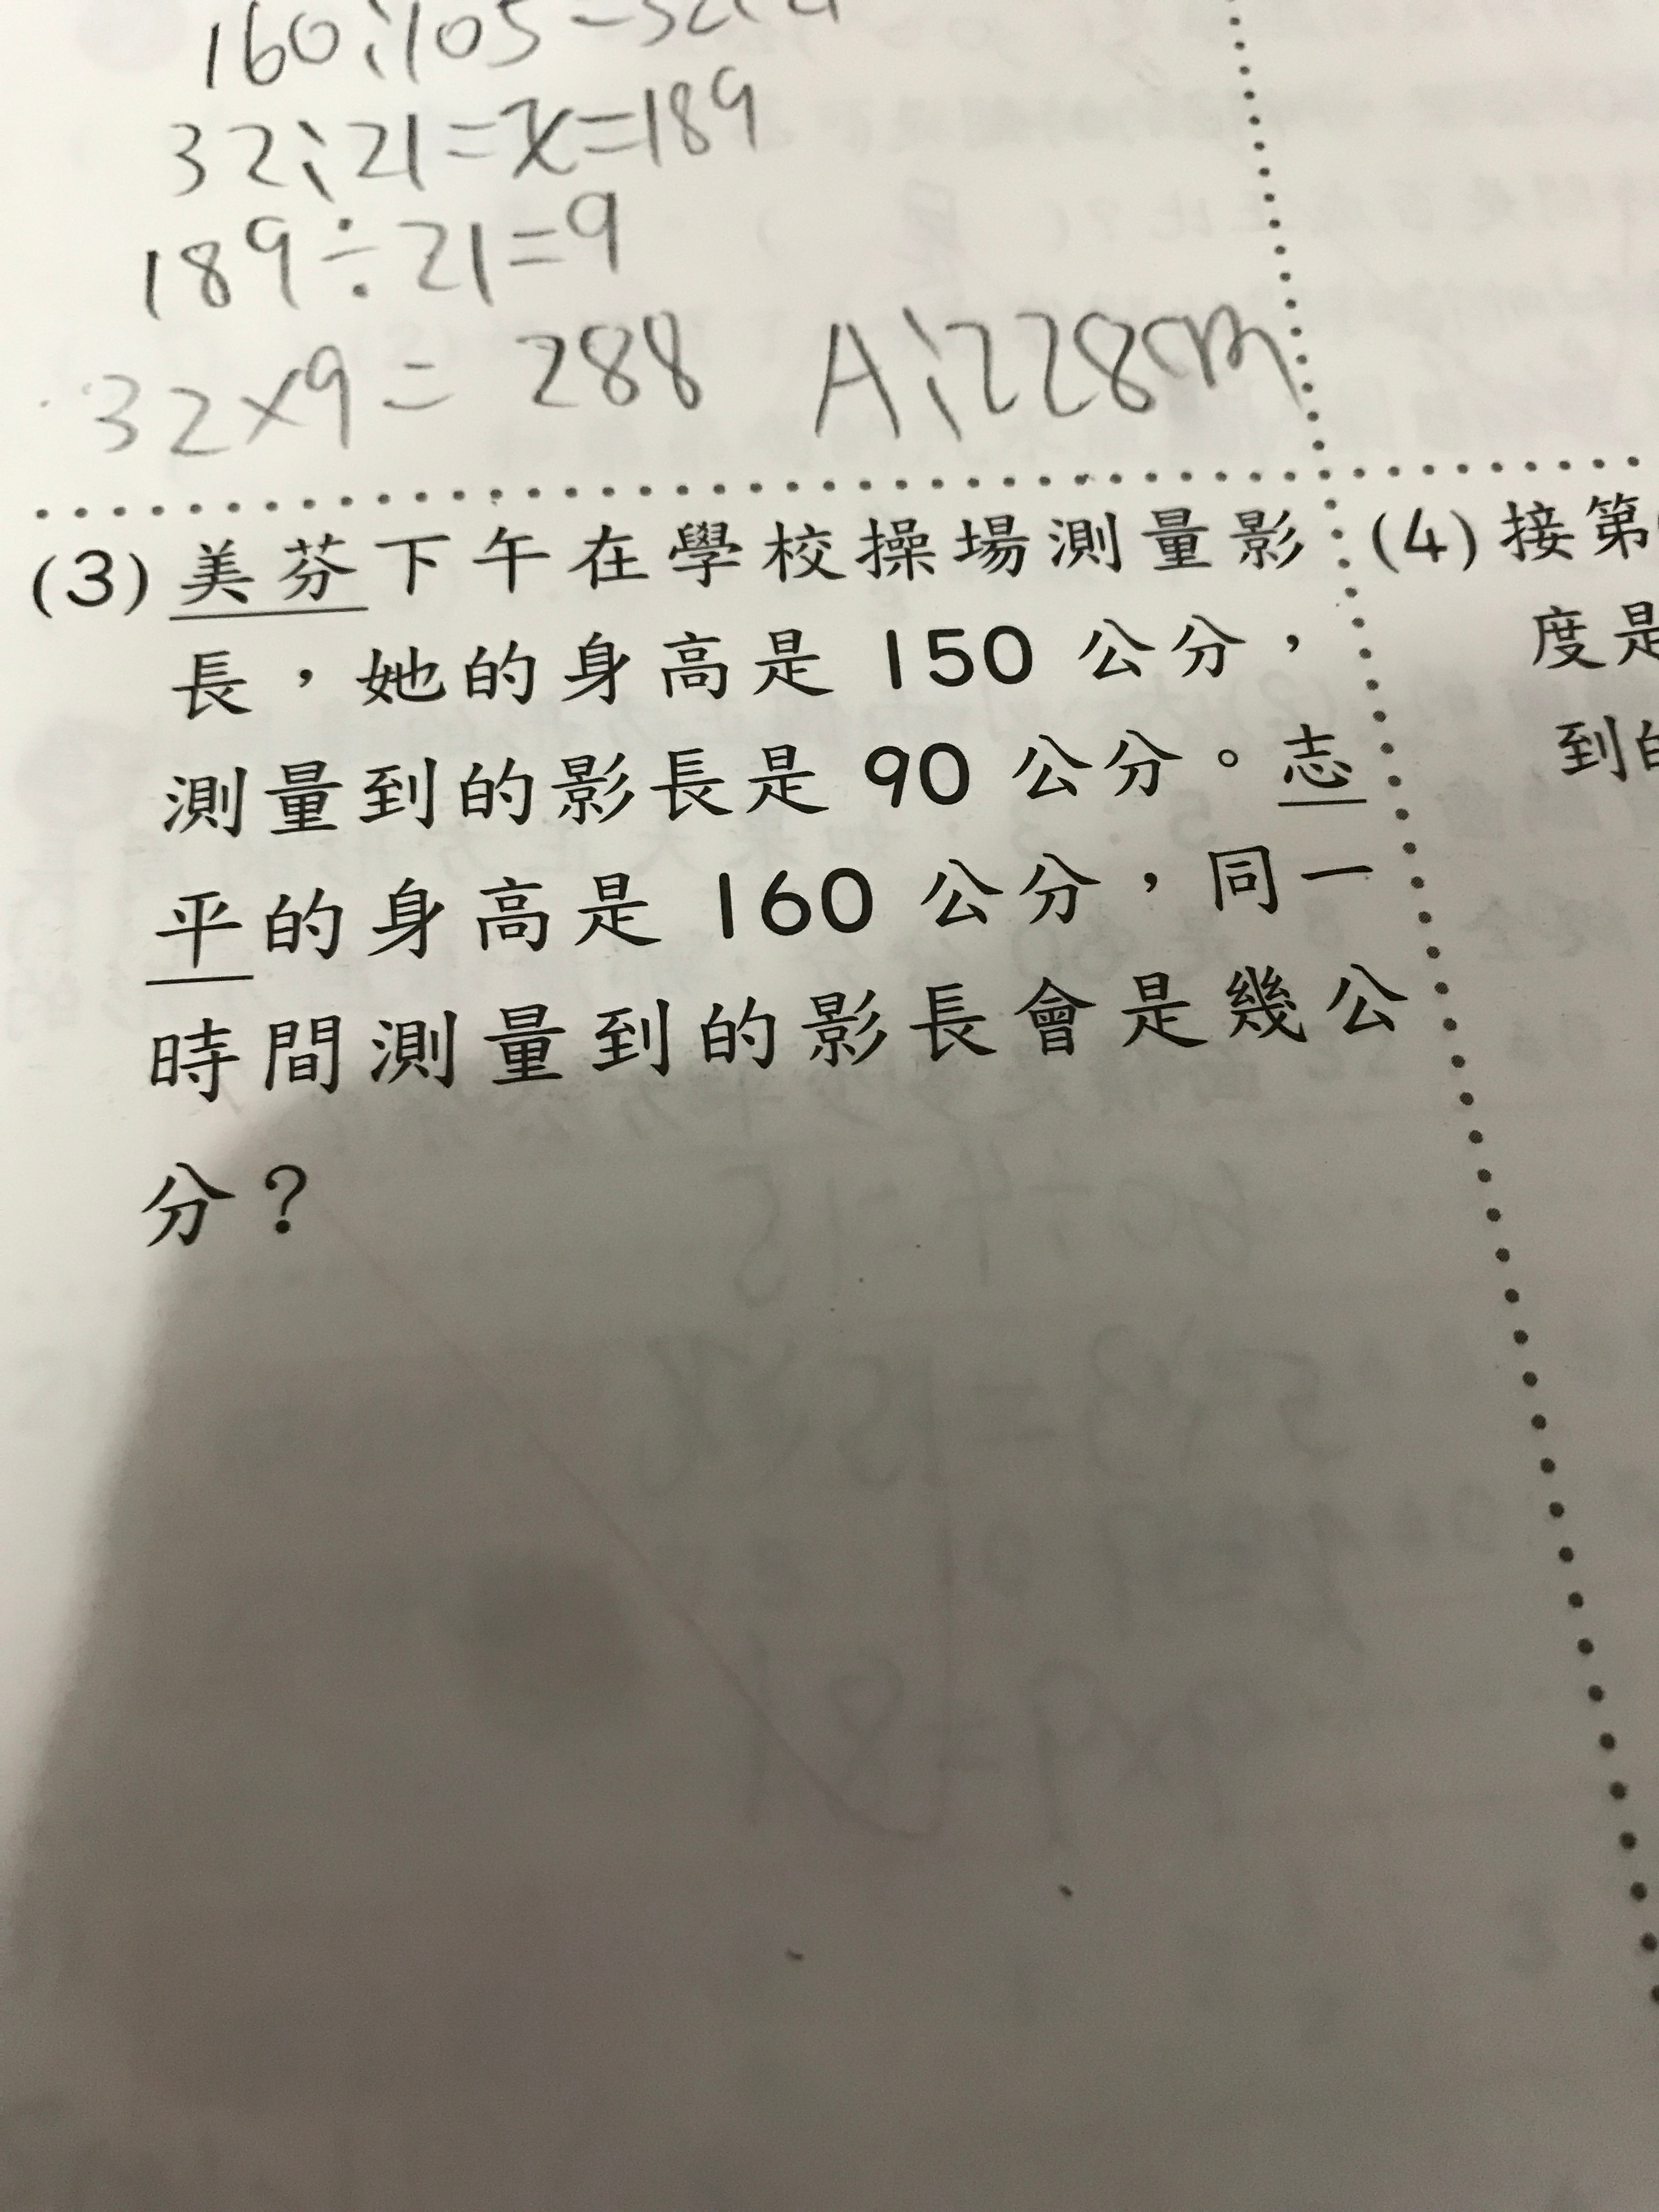 160:105=32:21
32:21=x=189
189÷21=9
32×9=288 A:228cm
(3) 美芬下午在學校操場測量影
長，她的身高是 150 公分，
測量到的影長是 90 公分。志
平的身高是 160 公分，同一
時間測量到的影長會是幾公
分？
(4) 接第
度是
到的